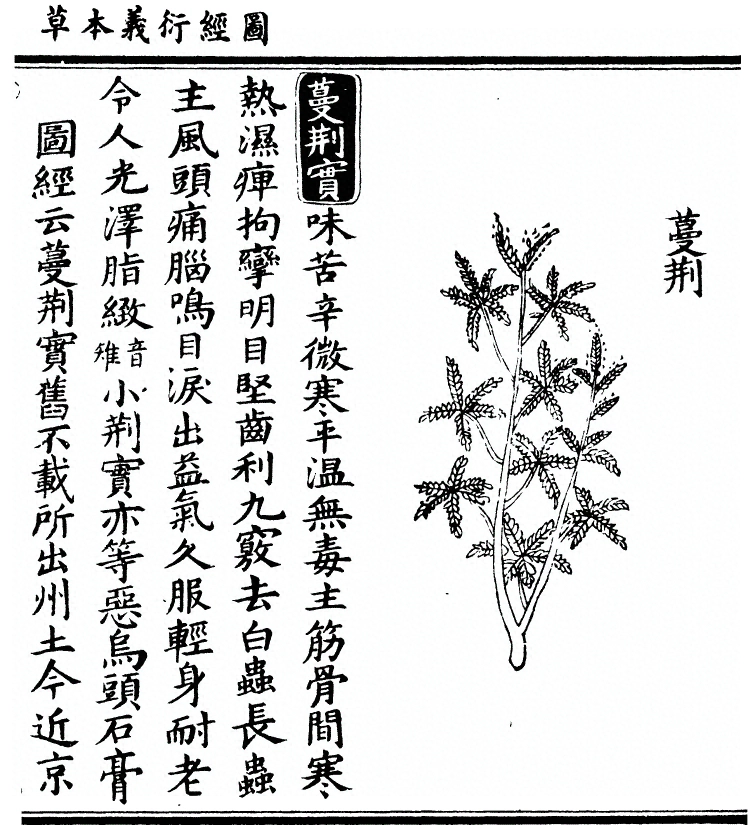 圖經衍義本草
蔓荊
蔓荊實味苦辛微寒平温無毒主筋骨間寒
熱濕痺拘攣明目堅齒利九竅去白蟲長蟲
主風頭痛腦鳴目淚出益氣久服輕身耐老
令人光澤脂緻音雉小荊實亦等惡烏頭石膏
圖經云蔓荊實舊不載所出州土今近京